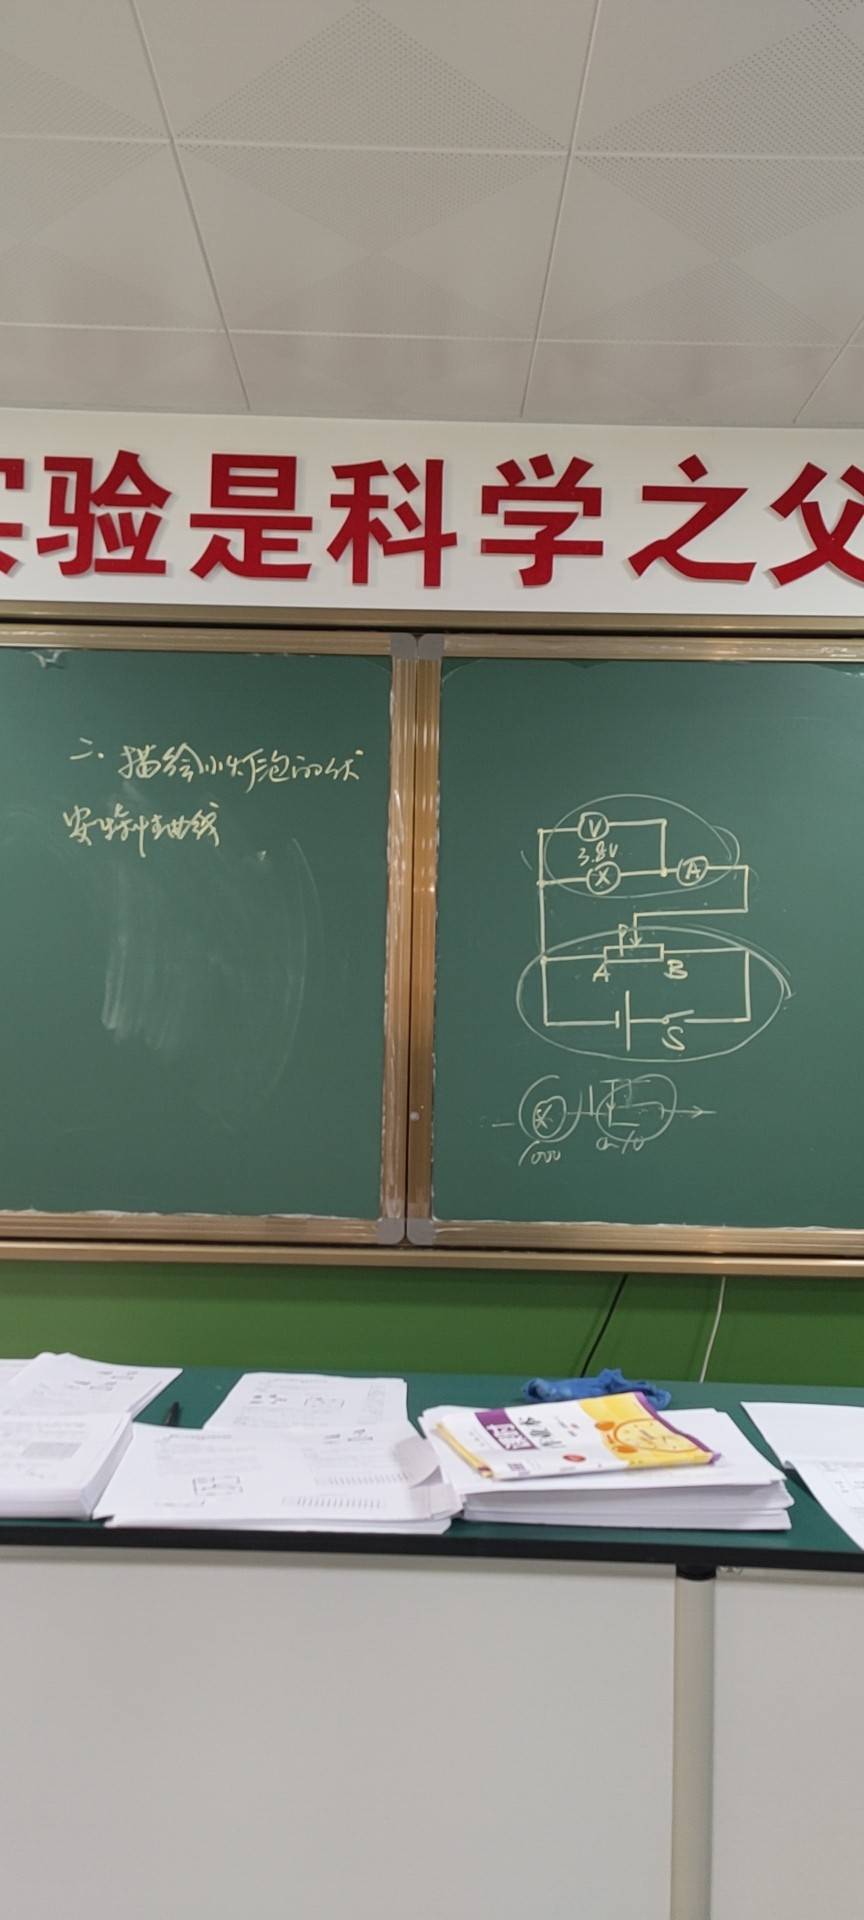 实验是科学之父
二. 描绘小灯泡的伏
安特性曲线
V
3.8V
X
A
P
A
B
S
1000
0~10